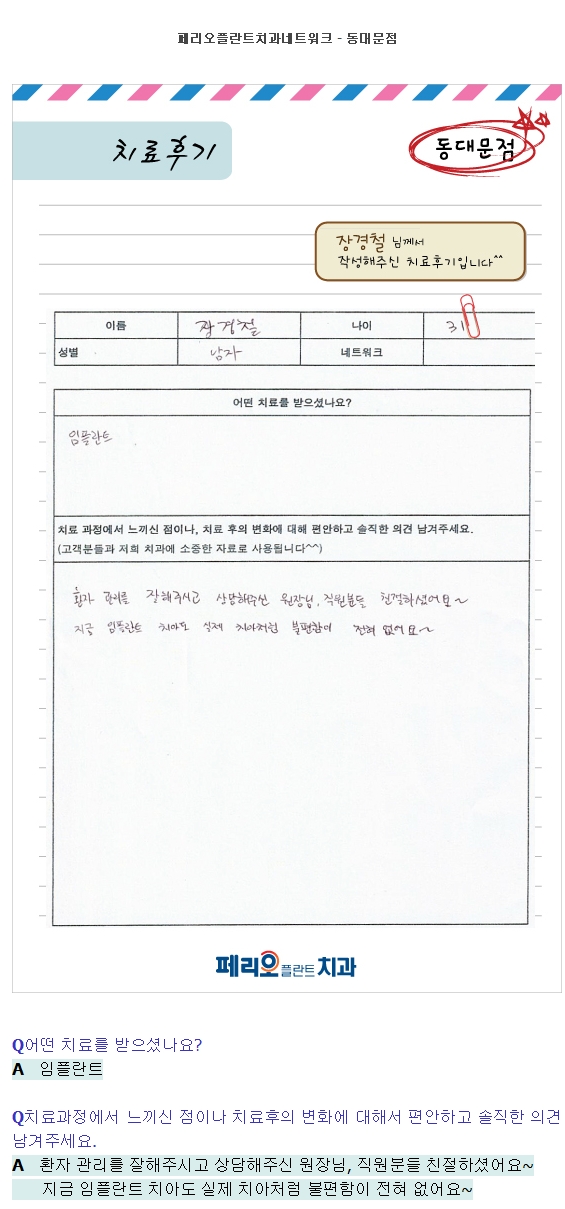 페리오플란트치과네트워크 - 동대문점
치료후기
동대문점
장경철 님께서
작성해주신 치료후기입니다^^
이름 장경철 나이 31
성별 남자 네트워크
어떤 치료를 받으셨나요?
임플란트
치료 과정에서 느끼신 점이나, 치료 후의 변화에 대해 편안하고 솔직한 의견 남겨주세요.
(고객분들과 저희 치과에 소중한 자료로 사용됩니다^^)
환자 관리를 잘해주시고 상담해주신 원장님, 직원분들 친절하셨어요~
지금 임플란트 치아도 실제 치아처럼 불편함이 전혀 없어요~
페리오플란트치과
Q어떤 치료를 받으셨나요?
A 임플란트
Q치료과정에서 느끼신 점이나 치료후의 변화에 대해서 편안하고 솔직한 의견
남겨주세요.
A 환자 관리를 잘해주시고 상담해주신 원장님, 직원분들 친절하셨어요~
지금 임플란트 치아도 실제 치아처럼 불편함이 전혀 없어요~